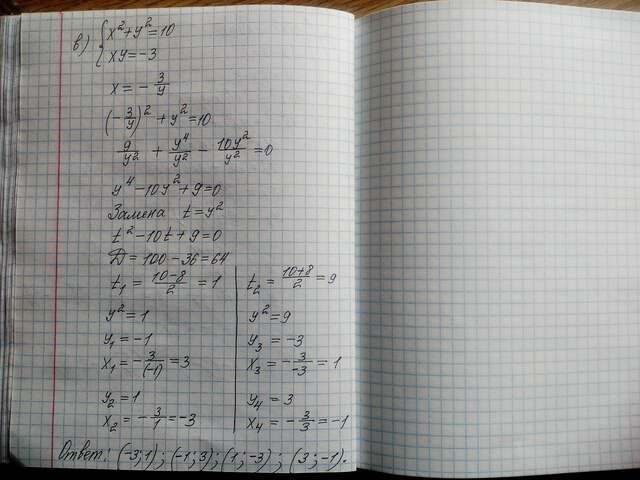 в) { x² + y² = 10
xy = -3
x = - 3/y
(- 3/y)² + y² = 10
9/y² + y⁴/y² - 10y²/y² = 0
y⁴ - 10y² + 9 = 0
Замена t = y²
t² - 10t + 9 = 0
D = 100 - 36 = 64
t₁ = (10-8)/2 = 1
y² = 1
y₁ = -1
x₁ = - 3/(-1) = 3
y₂ = 1
x₂ = - 3/1 = -3
t₂ = (10+8)/2 = 9
y² = 9
y₃ = -3
x₃ = - 3/-3 = 1
y₄ = 3
x₄ = - 3/3 = -1
Ответ: (-3; 1); (-1; 3); (1; -3); (3; -1).